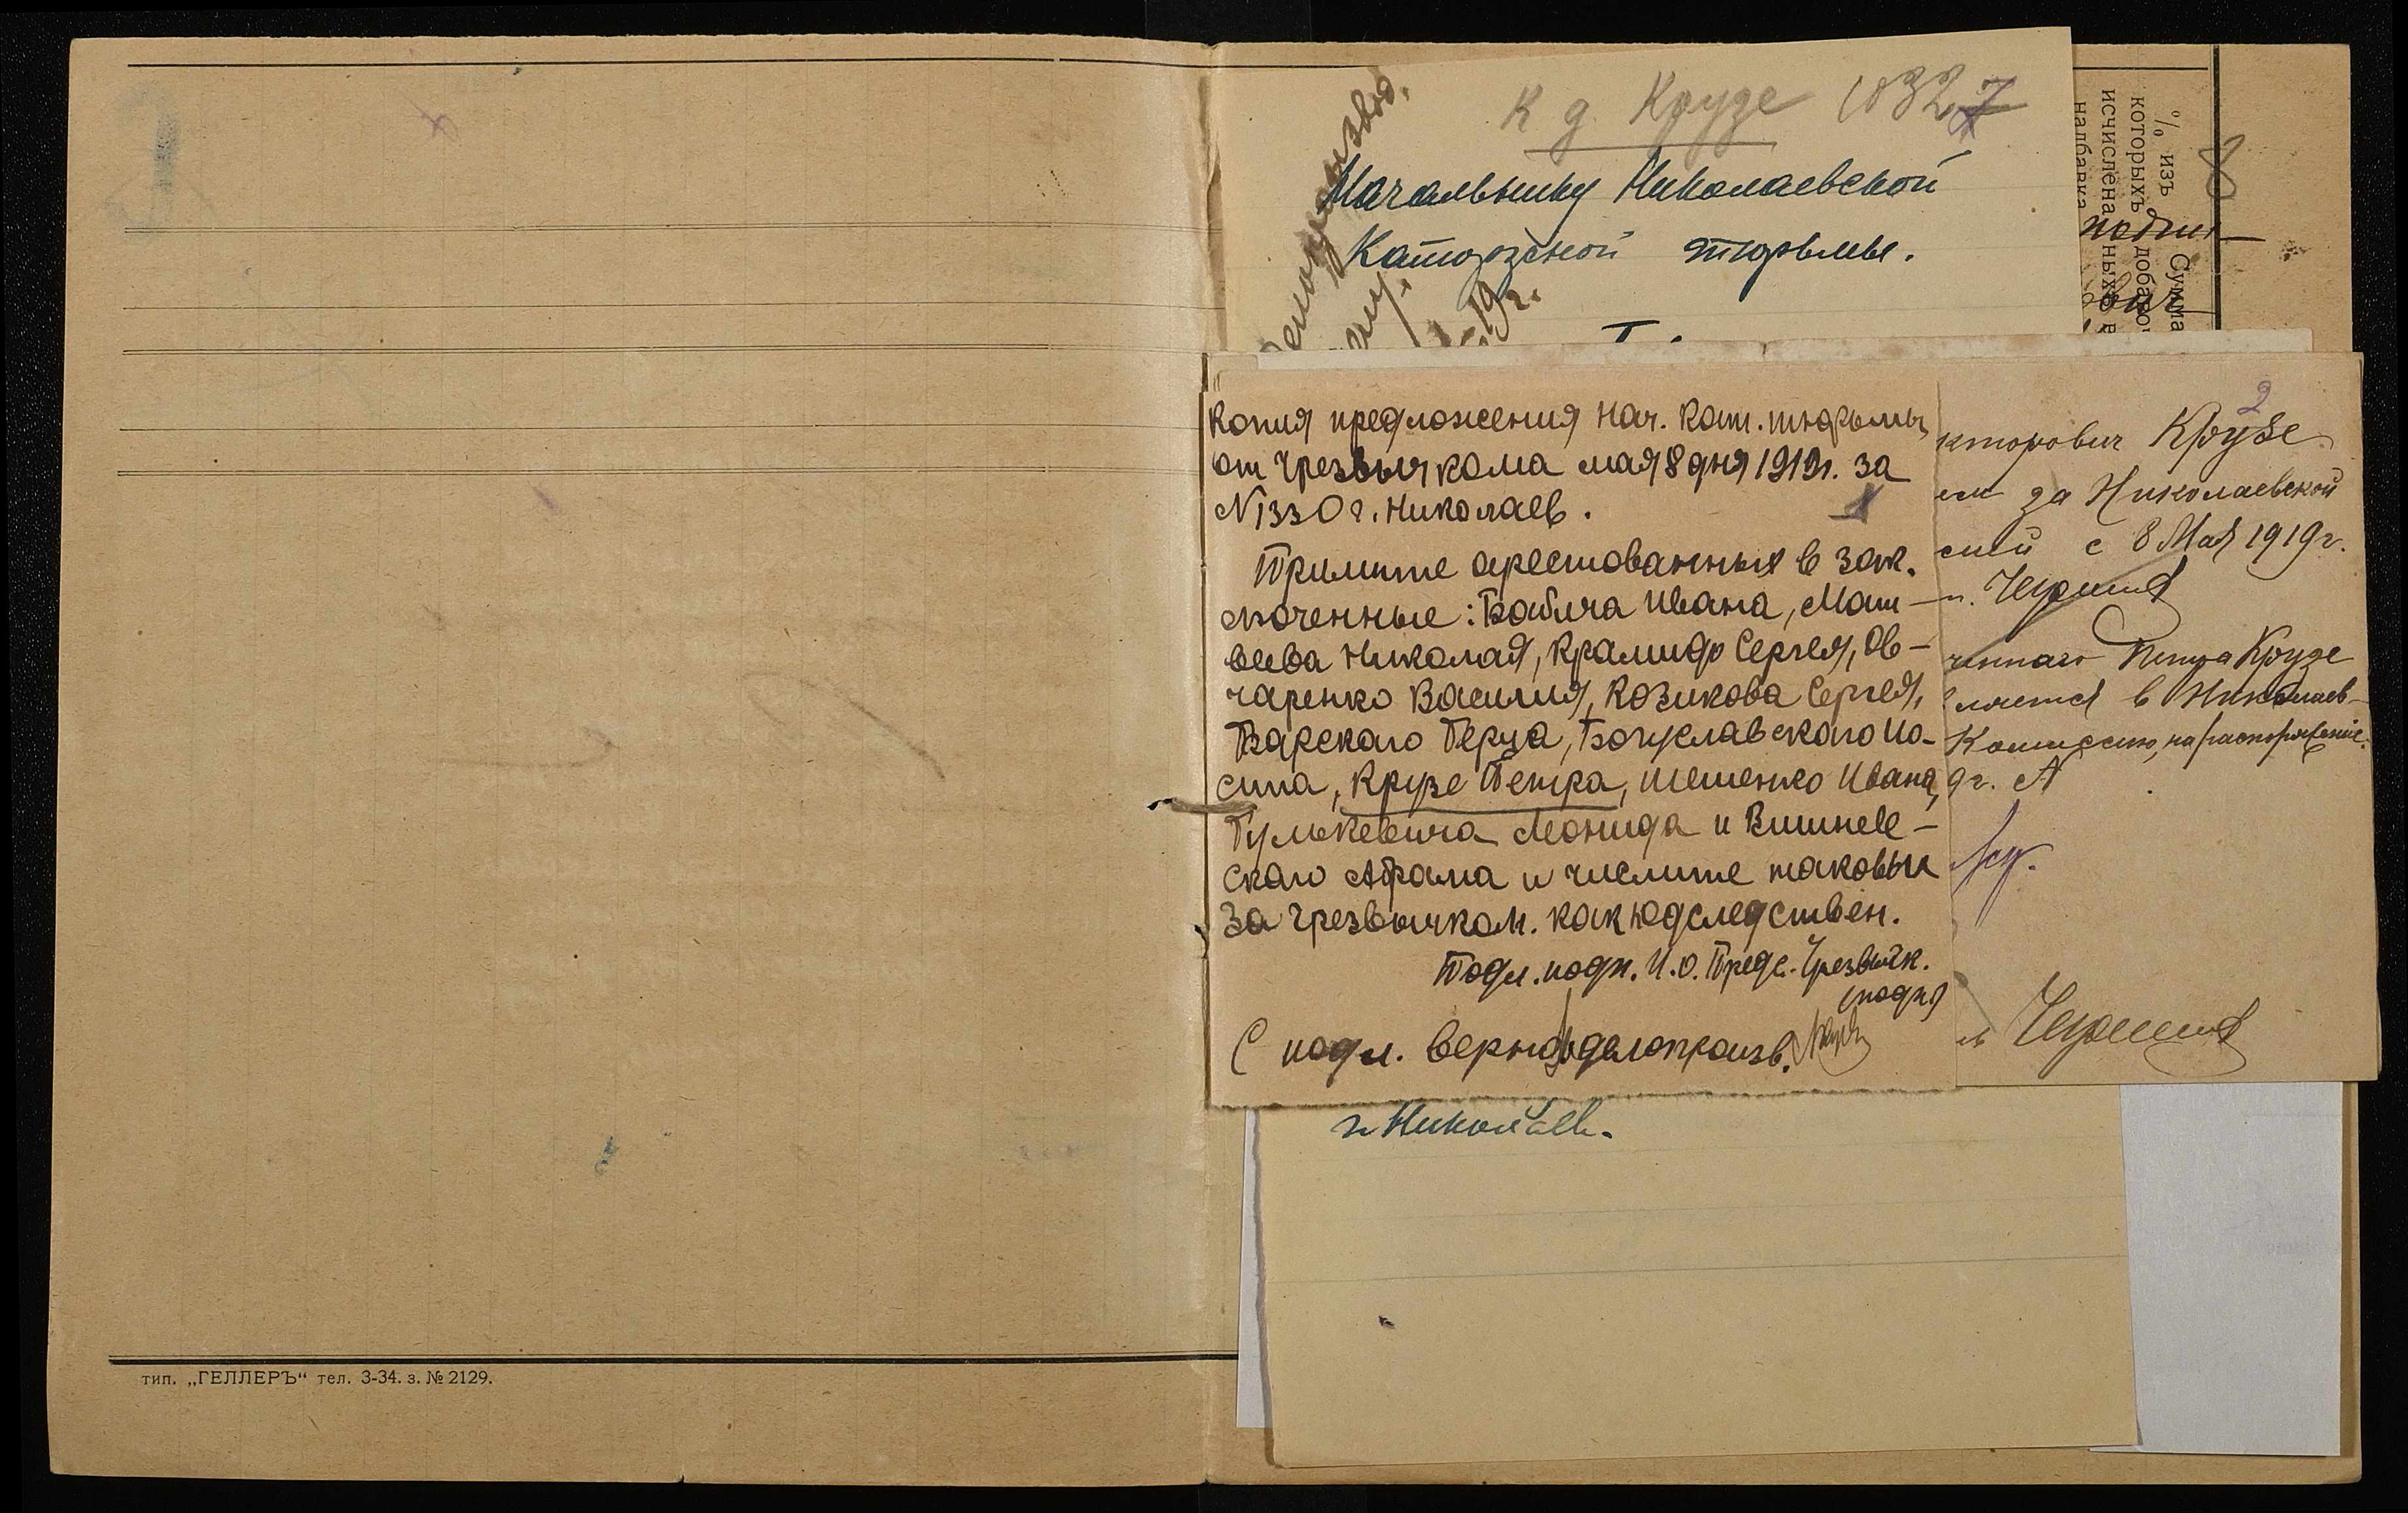 К д Крузе 1032
Начальнику Николаевской
Каторжной тюрьмы.
19г.
% изъ
которыхъ
исчислена
надбавка
Сумма
Копия предложения Нач. Кат. тюрьмы
от Чрезвычкома мая 8 дня 1919г. за
№ 1330 г. Николаев.
Примите арестованных в зак-
люченные: Бабича Ивана, Мат-
веева Николая, Крамидо Сергея, Ов-
чаренко Василия, Козикова Сергея,
Барского Герца, Богуславского Ио-
сипа, Крузе Петра, Шешенко Ивана,
Гулькевича Леонида и Вишнев-
ского Абрама и числите таковых
за Чрезвычком. как подследствен.
Подл. подп. И.О. Предс. Чрезвычк.
(подп)
С подл. верно: делопроизв.
2
кторович Крузе
за Николаевской
сией с 8 Мая 1919г.
ченнаго Петра Крузе
ляется в Николаев-
Комиссию, на распоряжение.
9г.
г. Николаев.
тип. „ГЕЛЛЕРЪ“ тел. 3-34. з. № 2129.